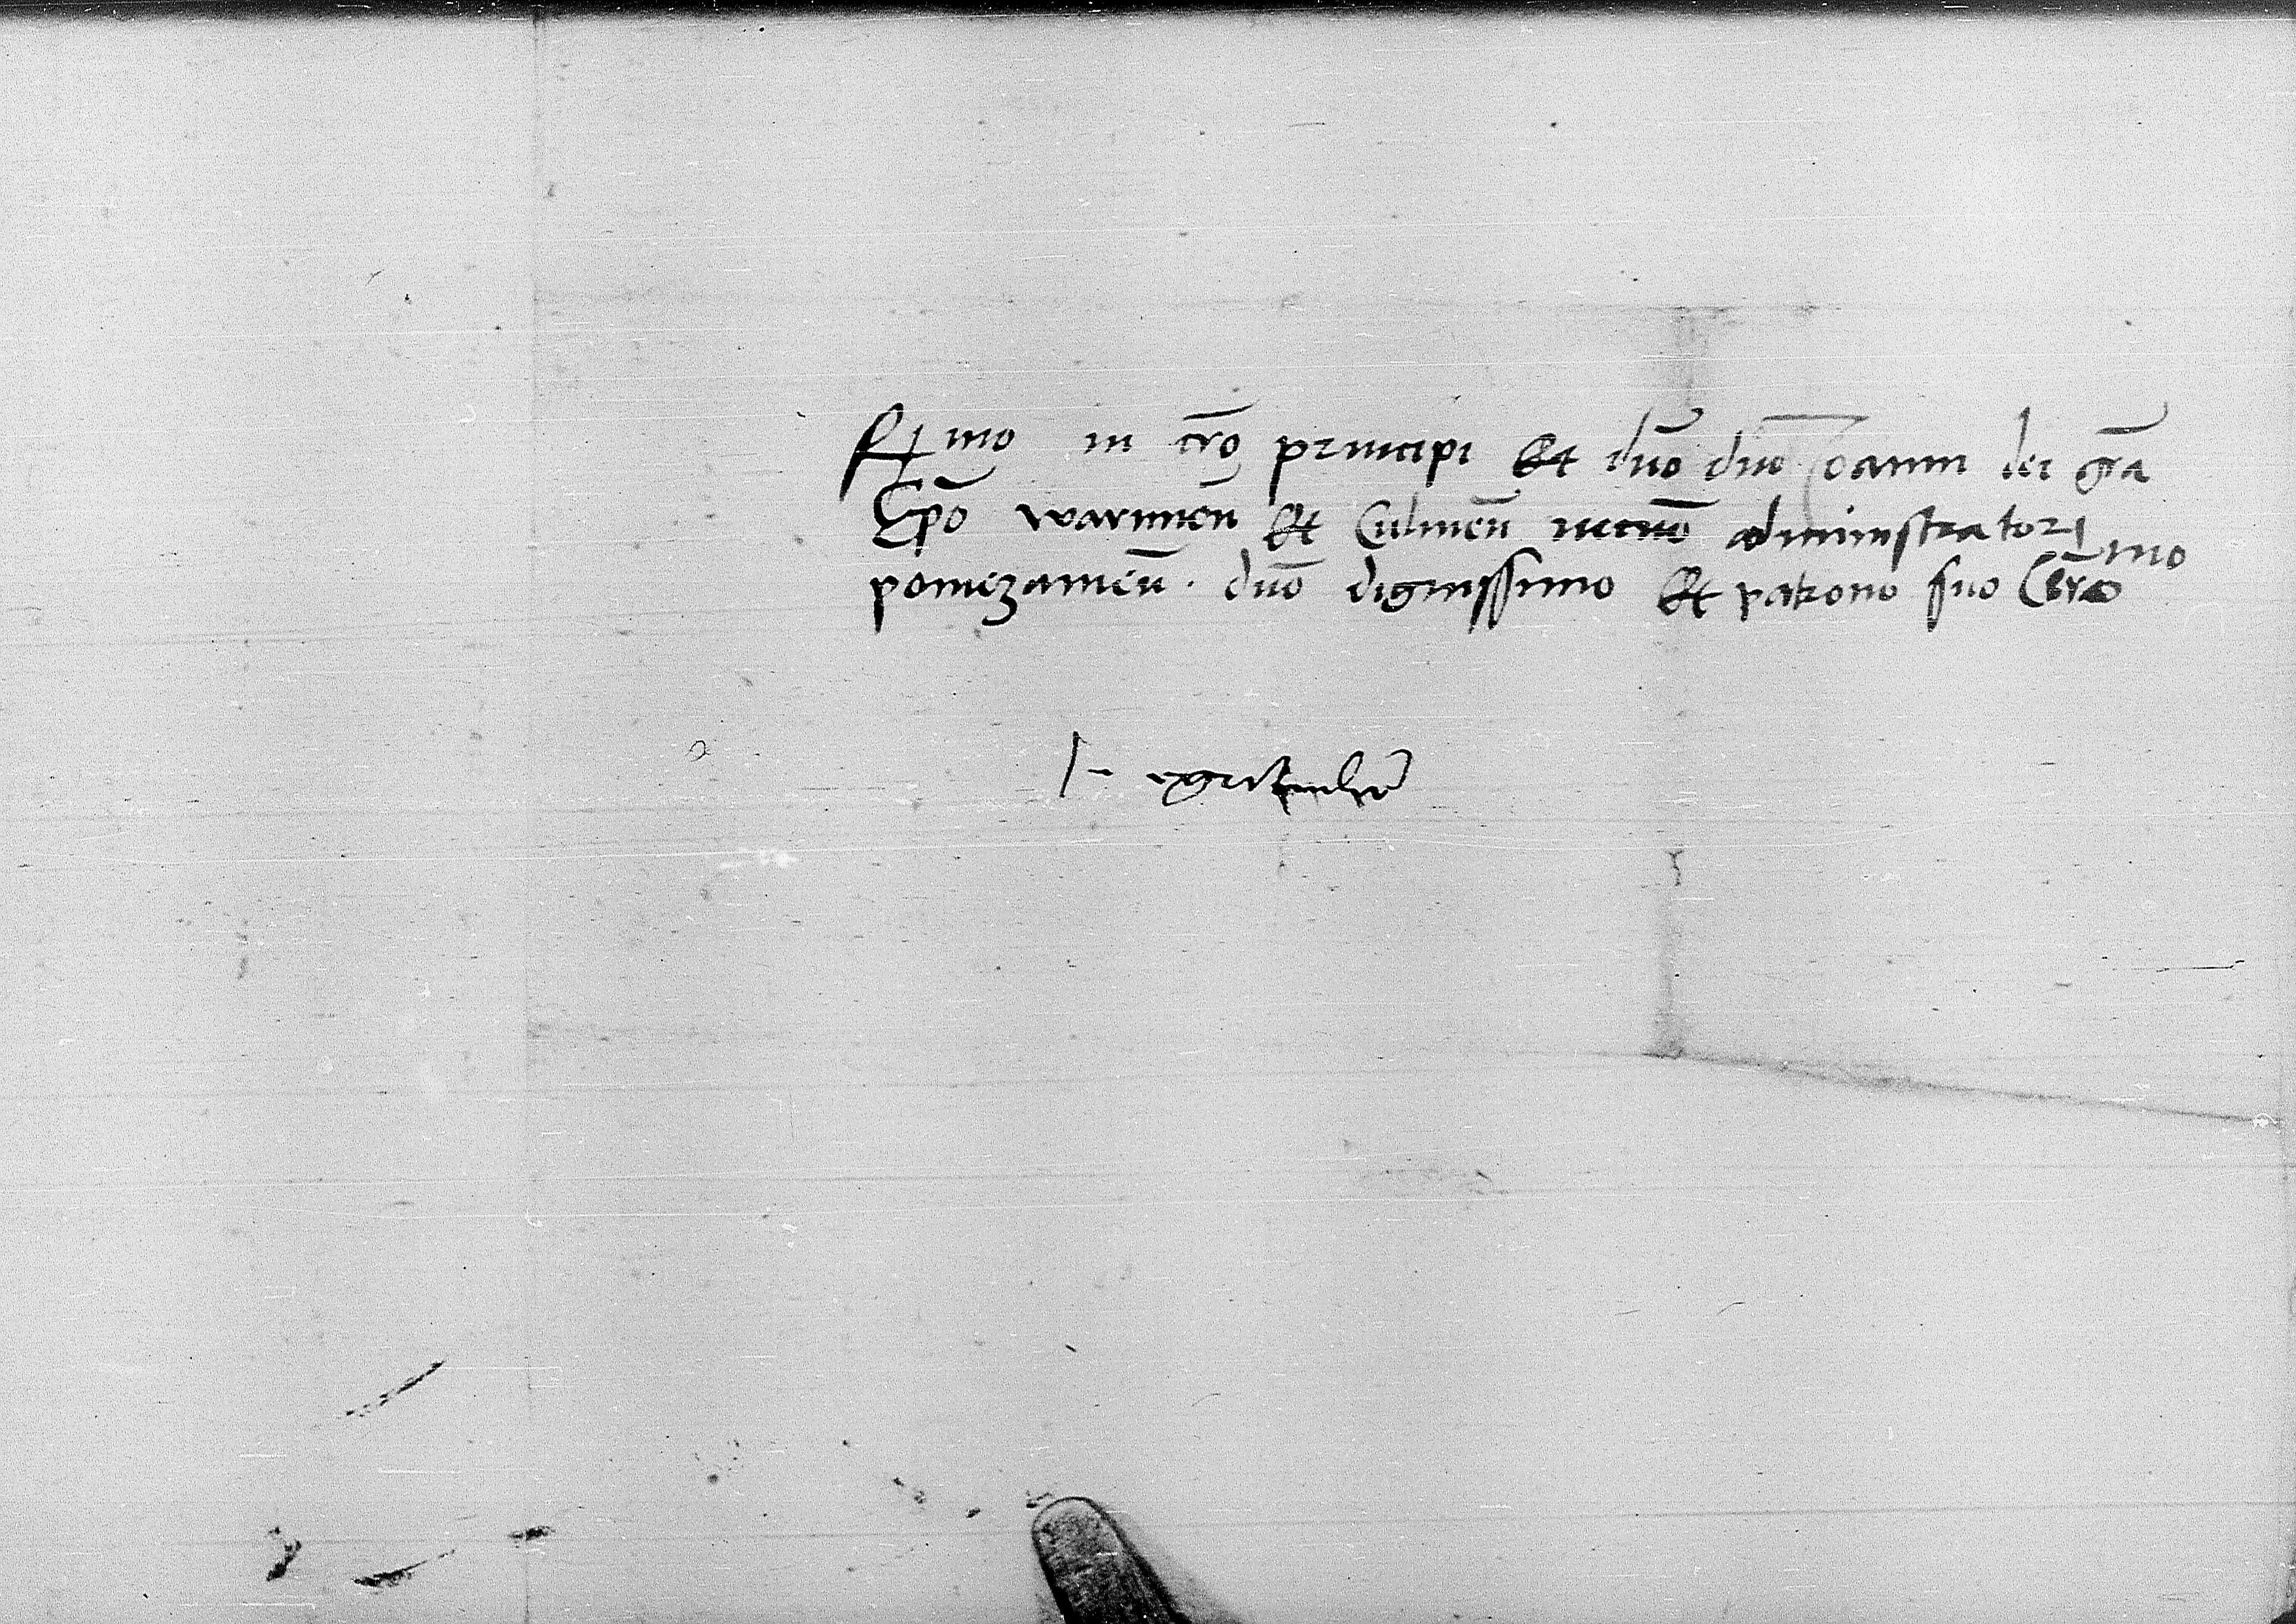 R mo in cro principi Et dno dno Joanni dei gra
Epo warmien Et Culmen necno administratori
pomezanien. dno dignissimo Et patrono suo Obser mo